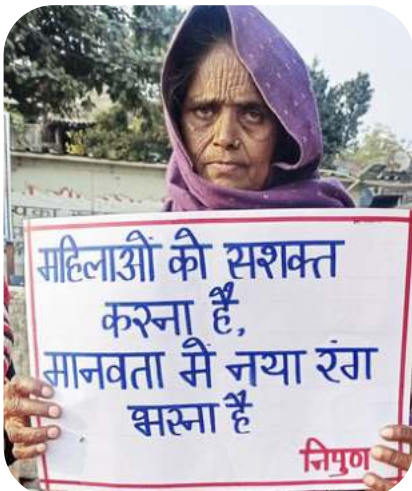 महिलाओं को सशक्त
करना है,
मानवता में नया रंग
भरना है
निपुण